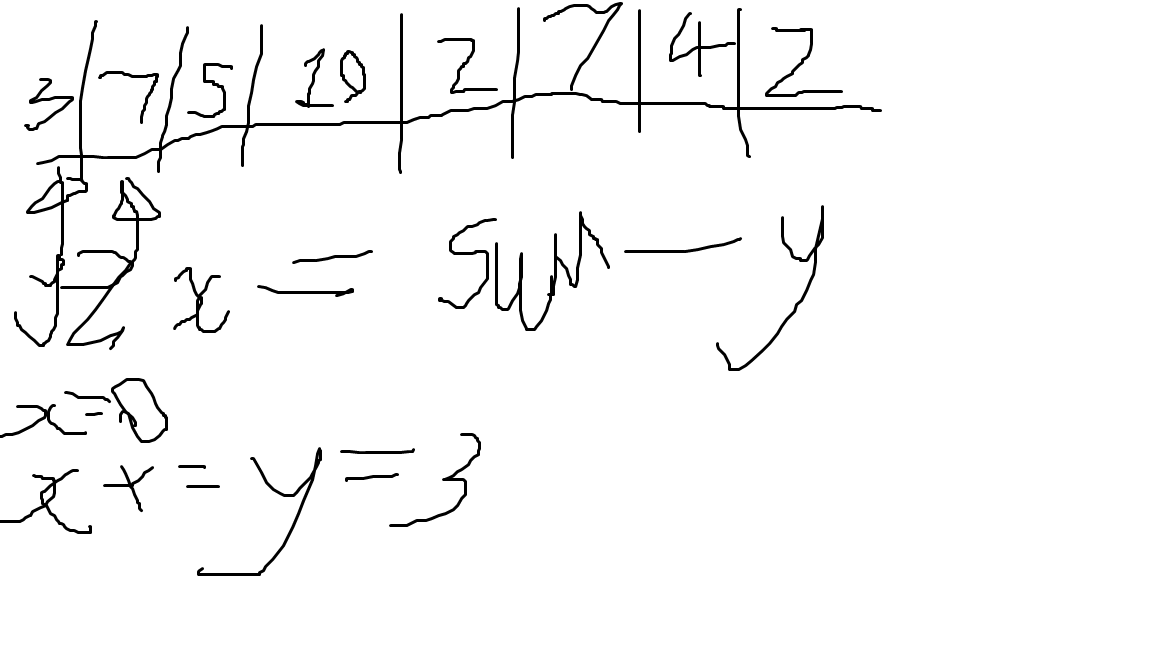 3 | 7 | 5 | 10 | 2 | 7 | 4 | 2
y z x = sum - y
x = 0
x + = y = 3